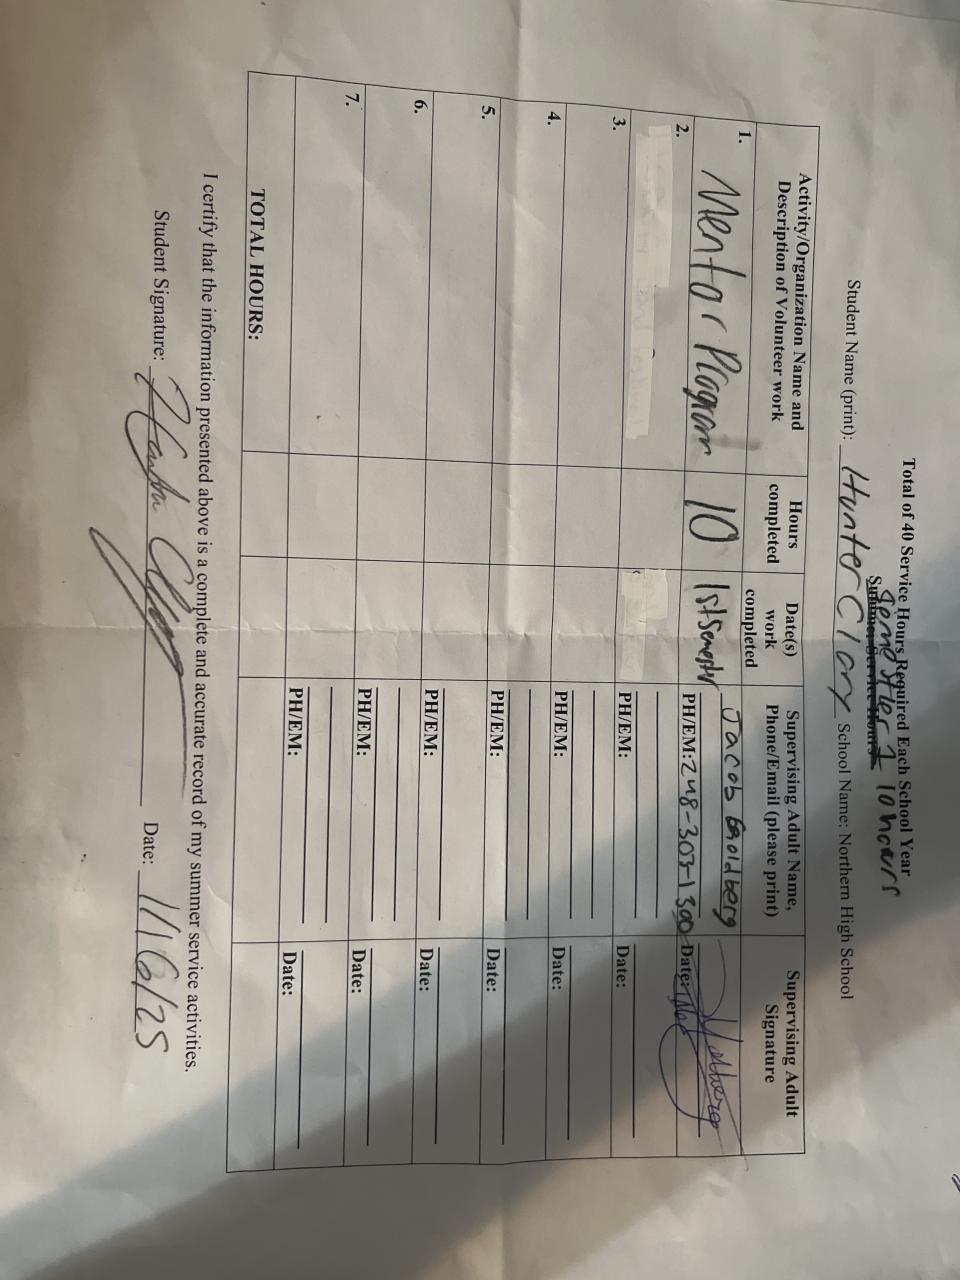 Total of 40 Service Hours Required Each School Year
Semester 1 10 hours
Summer Service Hours
Student Name (print): Hunter Clary School Name: Northern High School
Activity/Organization Name and Description of Volunteer work
Hours completed
Date(s) work completed
Supervising Adult Name, Phone/Email (please print)
Supervising Adult Signature
1. Mentor Program 10 1st Semester Jacob Goldberg
PH/EM: 248-303-1300 Date:
2.
PH/EM: Date:
3.
PH/EM: Date:
4.
PH/EM: Date:
5.
PH/EM: Date:
6.
PH/EM: Date:
7.
PH/EM: Date:
TOTAL HOURS:
I certify that the information presented above is a complete and accurate record of my summer service activities.
Student Signature: Hunter Clary Date: 1/16/25